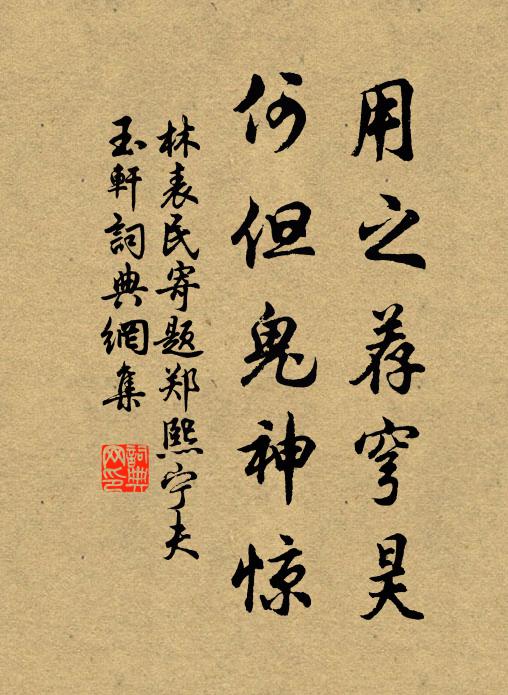 用之荐穹昊
何但鬼神惊
林表民寄题郑熙宁夫
玉軒詞典網集
詞典网印